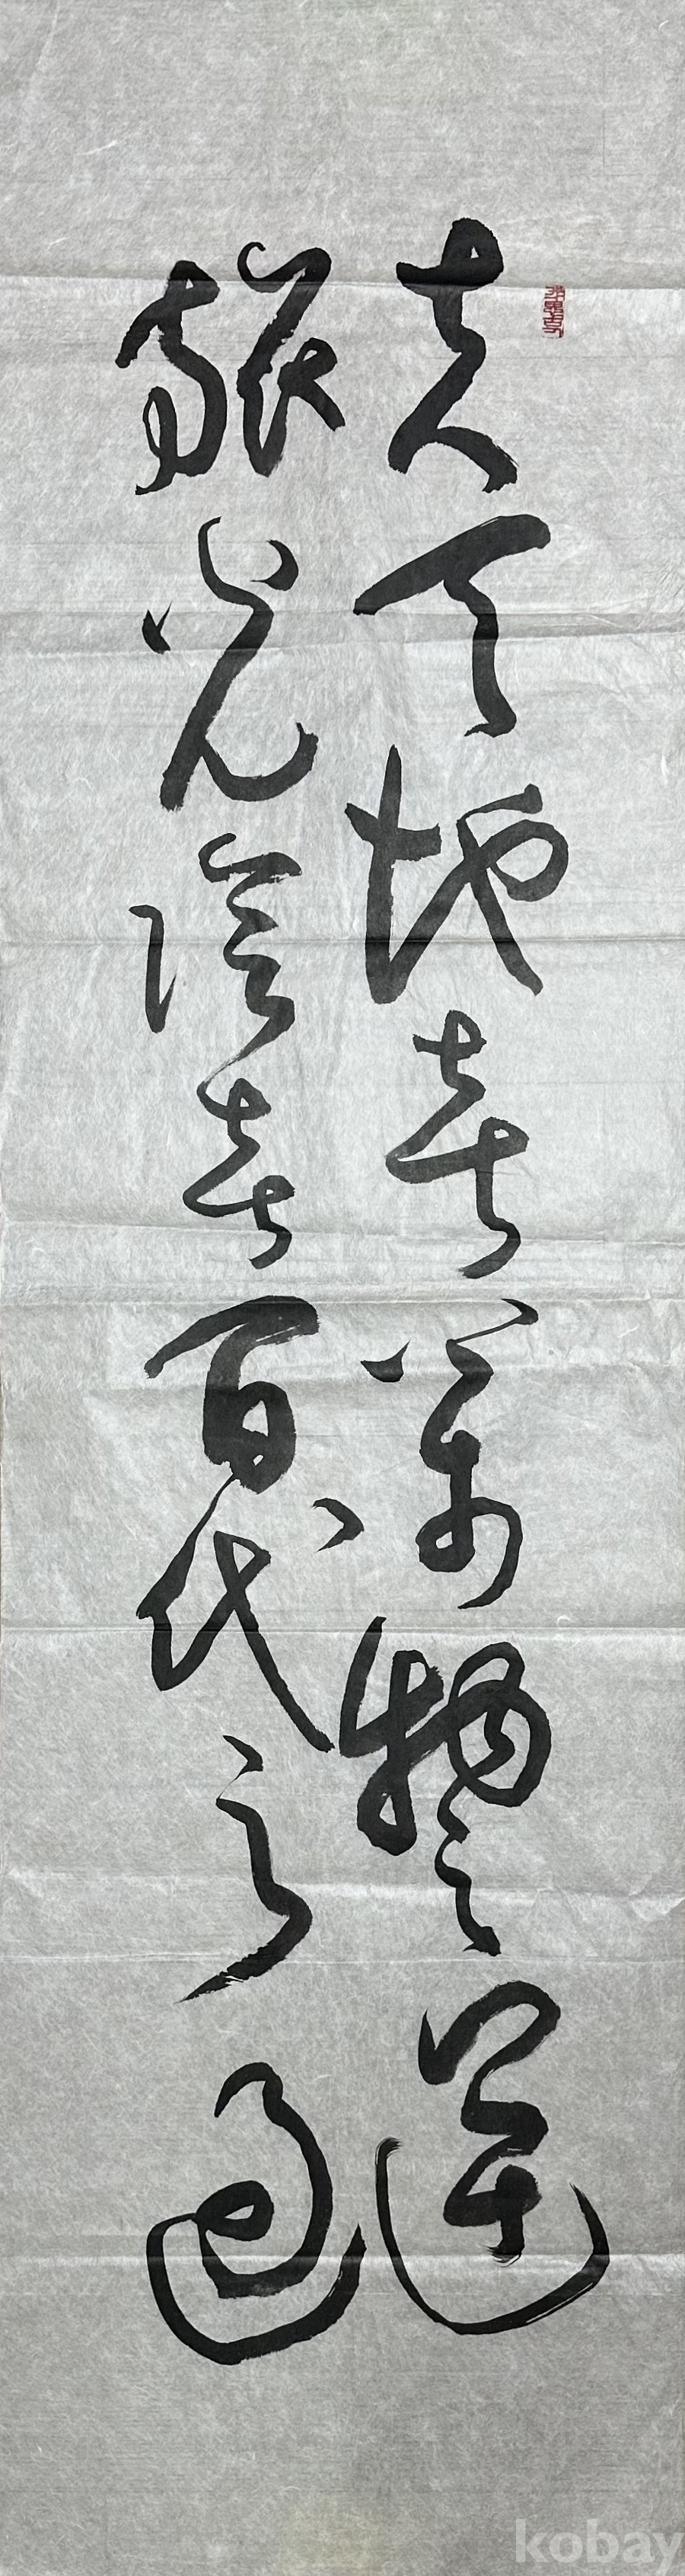 夫天地者萬物之逆
旅光陰者百代之過
kobay